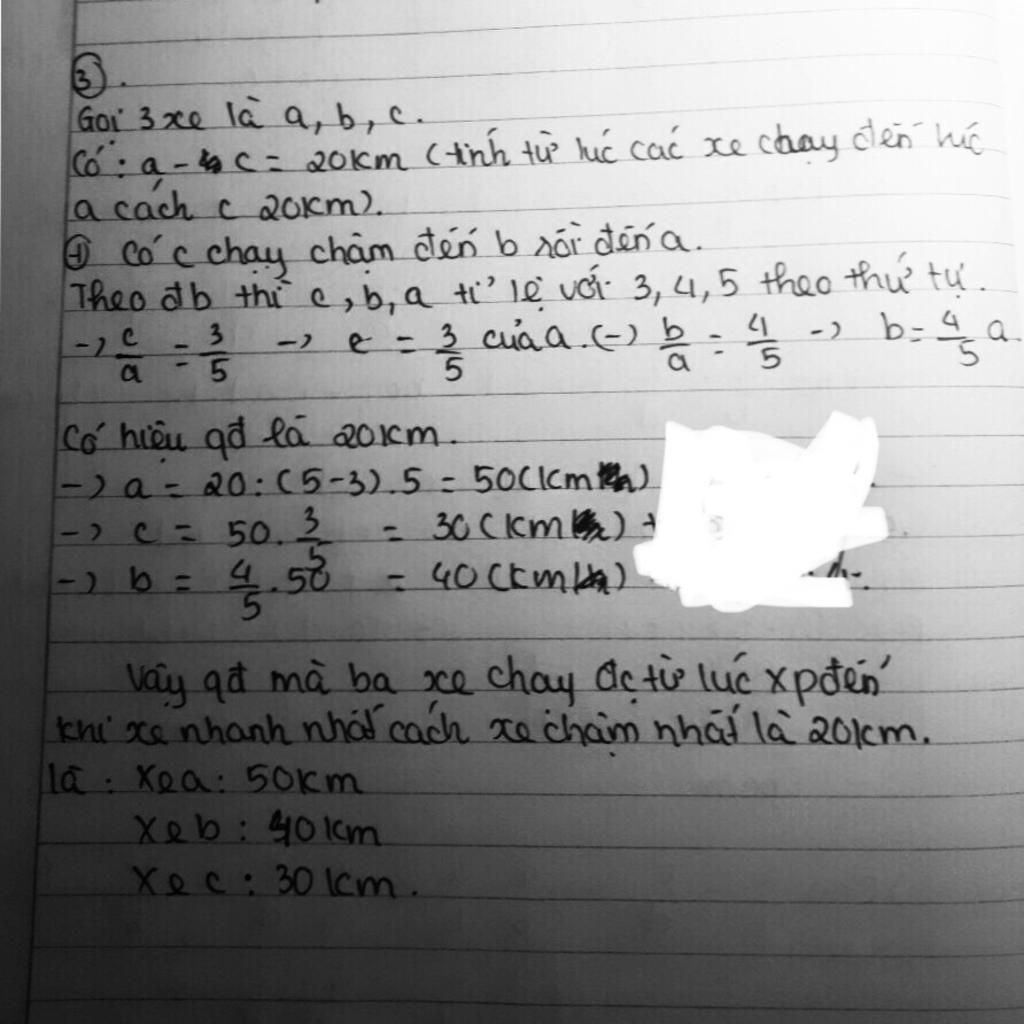 ③.
Gọi 3 xe là a, b, c.
Có: a - c = 20km (tính từ lúc các xe chạy đến lúc
a cách c 20km).
+ Có c chạy chậm đến b rồi đến a.
Theo đb thì c, b, a tỉ lệ với 3, 4, 5 theo thứ tự.
-> c/a = 3/5 -> c = 3/5 của a. (-) b/a = 4/5 -> b = 4/5 a.
Có hiệu qđ là 20km.
-> a = 20 : (5-3) . 5 = 50 (km)
-> c = 50 . 3/5 = 30 (km)
-> b = 4/5 . 50 = 40 (km)
Vậy qđ mà ba xe chạy đc từ lúc xp đến
khi xe nhanh nhất cách xe chậm nhất là 20km.
là : Xe a : 50km
Xe b : 40km
Xe c : 30km.